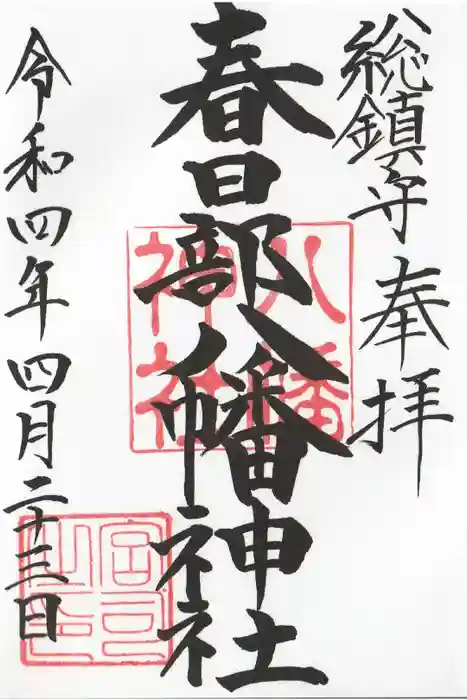 総鎮守 奉拝
春日部八幡神社
令和四年四月二十三日
八幡
神社
宮司
之印